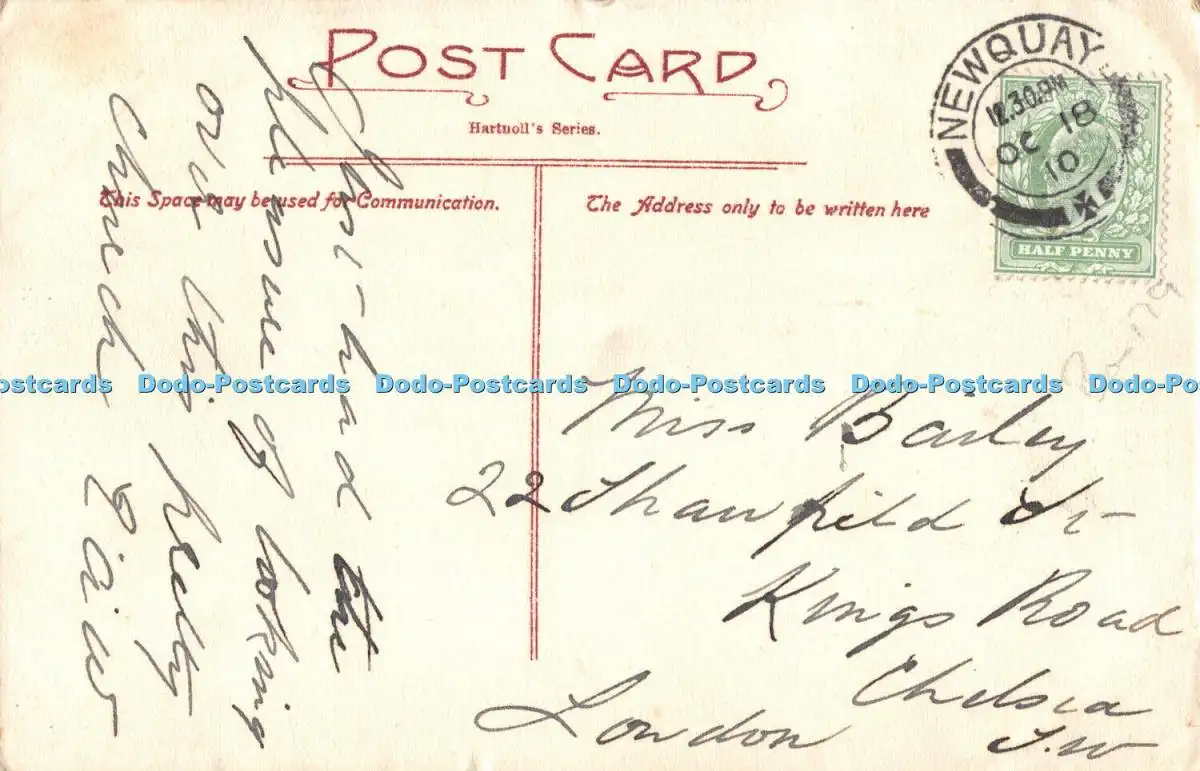 POST CARD
Hartnoll's Series.
NEWQUAY
12.30PM
OC 18
10
HALF PENNY
This Space may be used for Communication.
The Address only to be written here
had the
pleasure of looking
over this pretty
Church
ostcards Dodo-Postcards Dodo-Postcards Dodo-Postcards Dodo-Postcards Dodo-Po
Miss Bailey
22 Shawfield St
Kings Road
Chelsea
London S.W